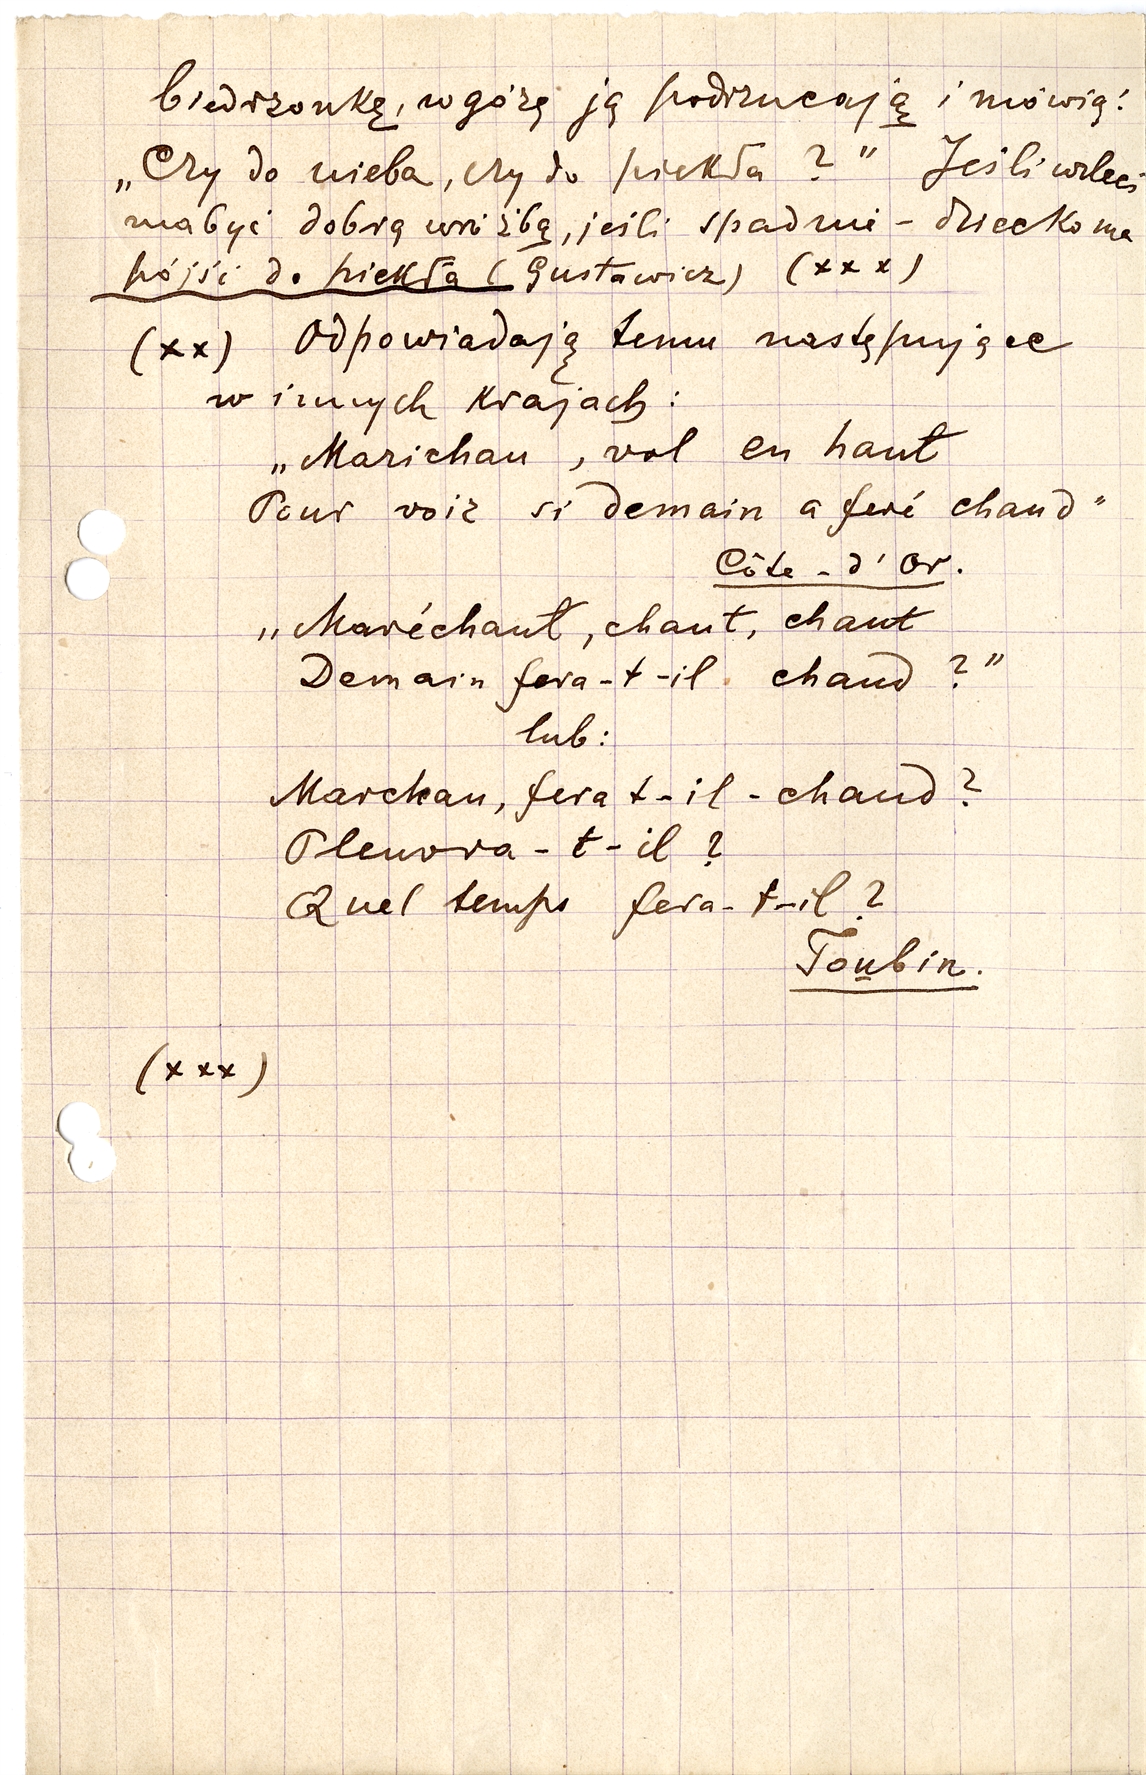 biedrzonkę, w górę ją podrzucają i mówią:
„Czy do nieba, czy do piekła?” Jeśli wzleci
ma być dobrą wróżbą, jeśli spadnie – dziecko ma
pójść do piekła (Gustawicz) (xxx)
(xx) Odpowiadają temu następujące
w innych krajach:
„Marichau, vol en haut
Pour voir si demain a feré chaud”
Côte-d'Or.
„Maréchaut, chaut, chaut
Demain fera-t-il chaud?”
lub:
Marchau, fera t-il-chaud?
Pleuvra-t-il?
Quel temps fera-t-il?
Toubin.
(xxx)